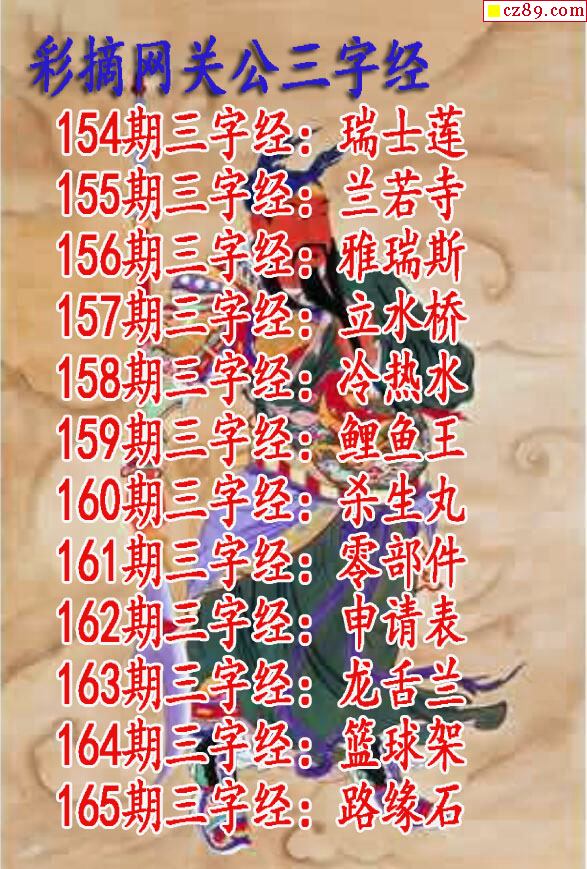 cz89.com
彩摘网关公三字经
154期三字经：瑞士莲
155期三字经：兰若寺
156期三字经：雅瑞斯
157期三字经：立水桥
158期三字经：冷热水
159期三字经：鲤鱼王
160期三字经：杀生丸
161期三字经：零部件
162期三字经：申请表
163期三字经：龙舌兰
164期三字经：篮球架
165期三字经：路缘石